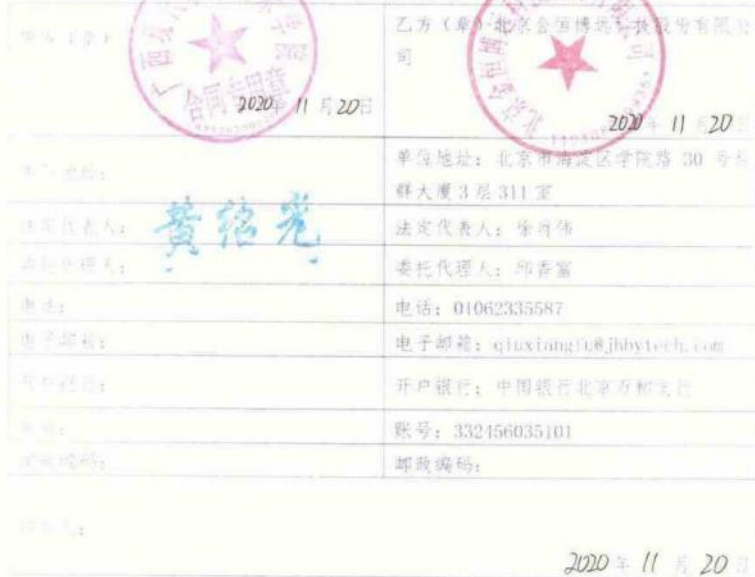 甲方（章） 乙方（章）北京金恒博远科技股份有限公
司
合同专用章
2020年 11月20日 2020年 11月20日
单位地址： 单位地址：北京市海淀区学院路 30 号科
群大厦 3 层 311 室
法定代表人：黄绍光 法定代表人：徐
委托代理人： 委托代理人：邱香富
电话： 电话：01062335587
电子邮箱： 电子邮箱：qiuxiangfu@jhbytech.com
开户银行： 开户银行：中国银行北京万柳支行
账号： 账号：332456035101
邮政编码： 邮政编码：
2020年 11月 20日